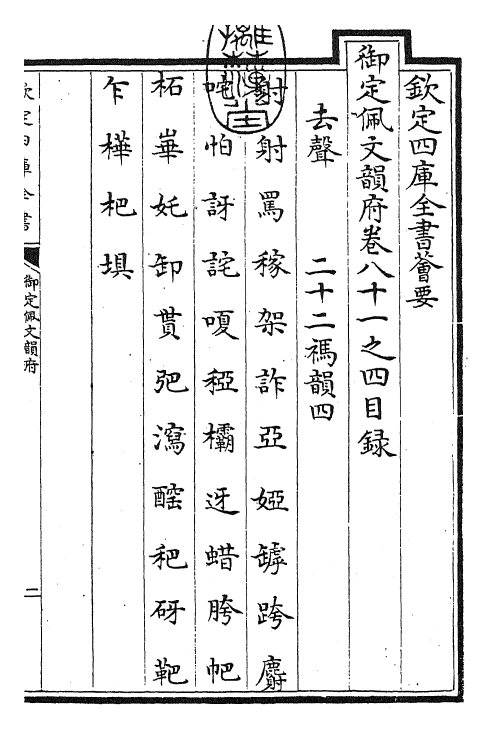 欽定四庫全書薈要
御定佩文韻府卷八十一之四目録
去聲　二十二禡韻四
射罵稼架詐亞婭罅跨麝
怕訝詫嗄稏欛迓蜡胯帊
柘崋奼卸貰弝瀉醡秅砑靶
乍樺杷埧
欽定四庫全書
御定佩文韻府
二